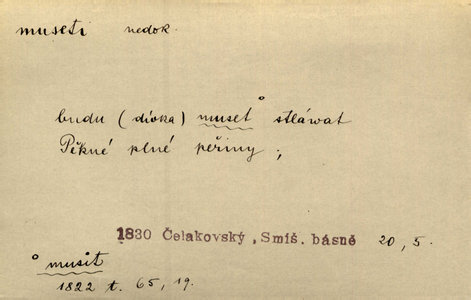 museti nedok.
budu (dívka) muset° stláwat
Pěkné plné peřiny ;
1830 Čelakovský, Smíš. básně 20, 5.
° musit
1822 t. 65, 19.